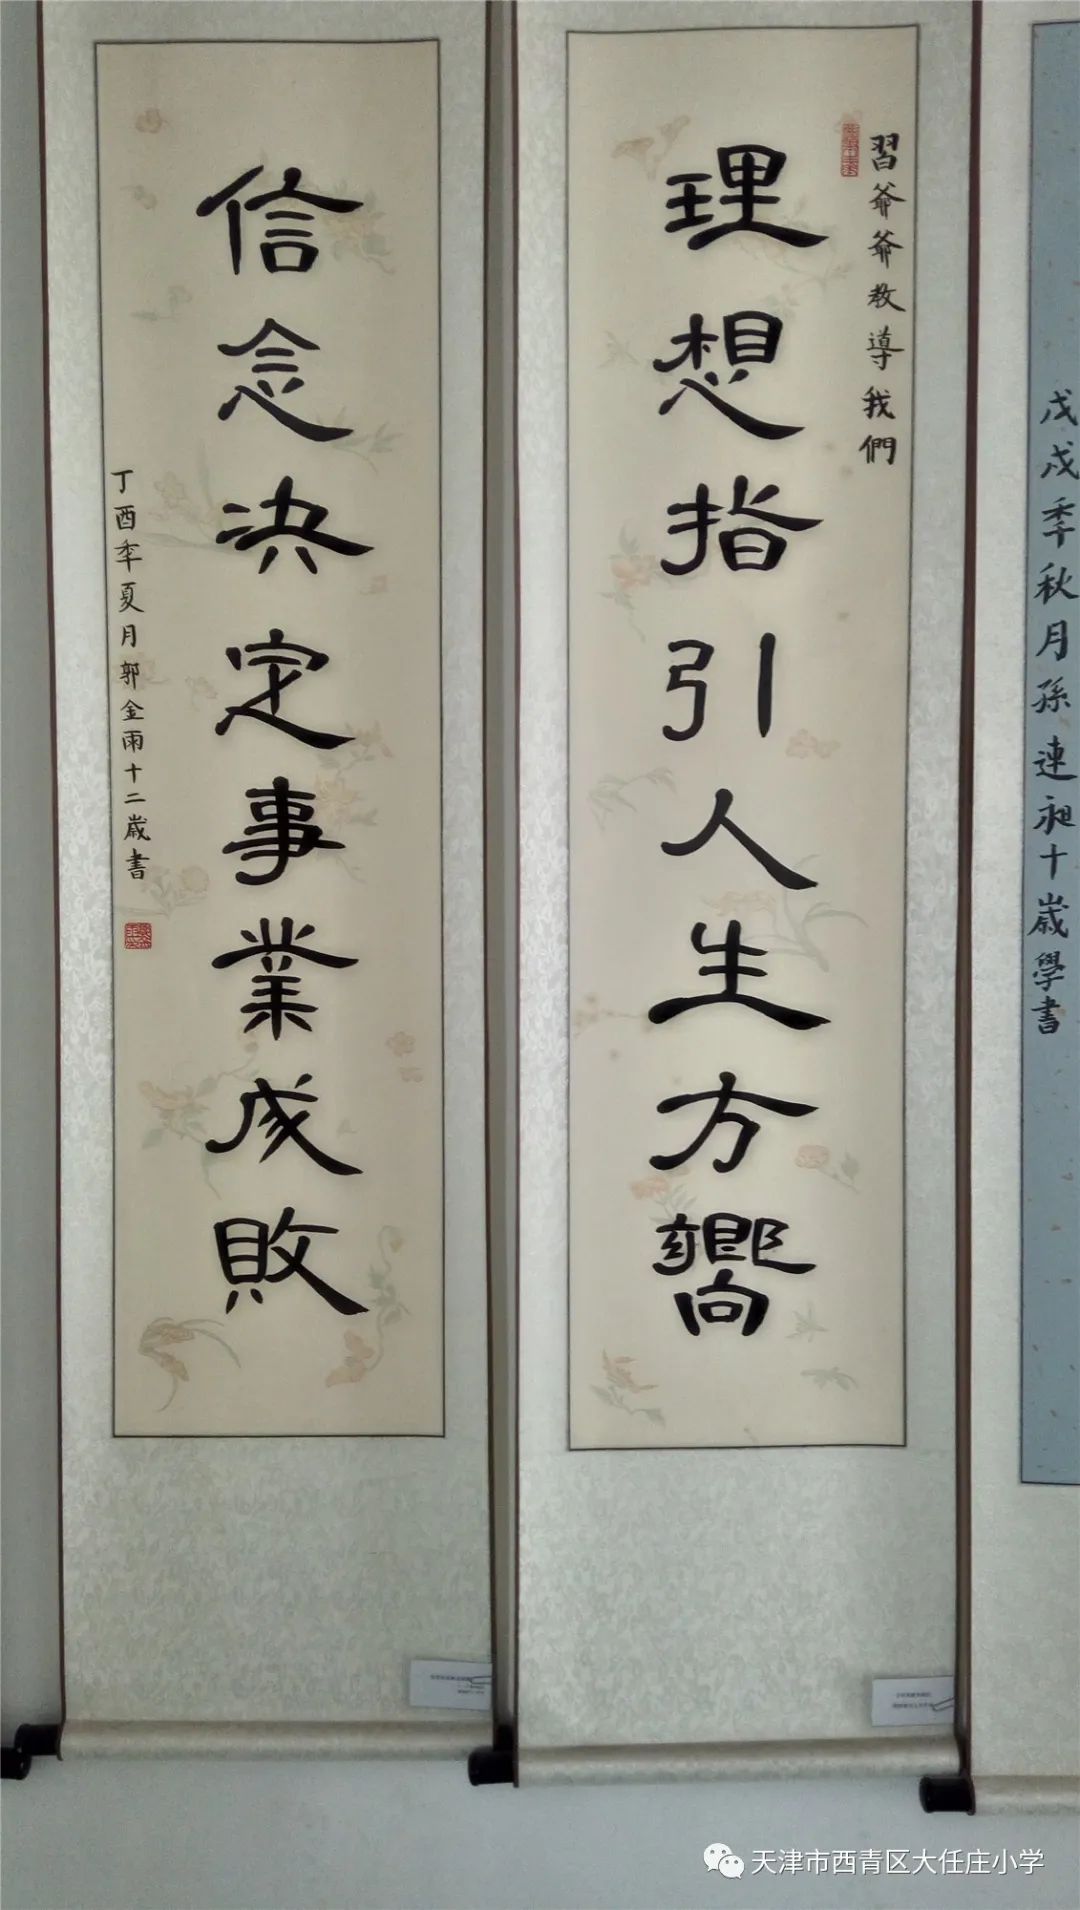 習爺爺教導我們
理想指引人生方嚮
信念決定事業成敗
丁酉年夏月郭金雨十二歲書
戊戌年秋月孫連昶十歲學書
天津市西青区大任庄小学